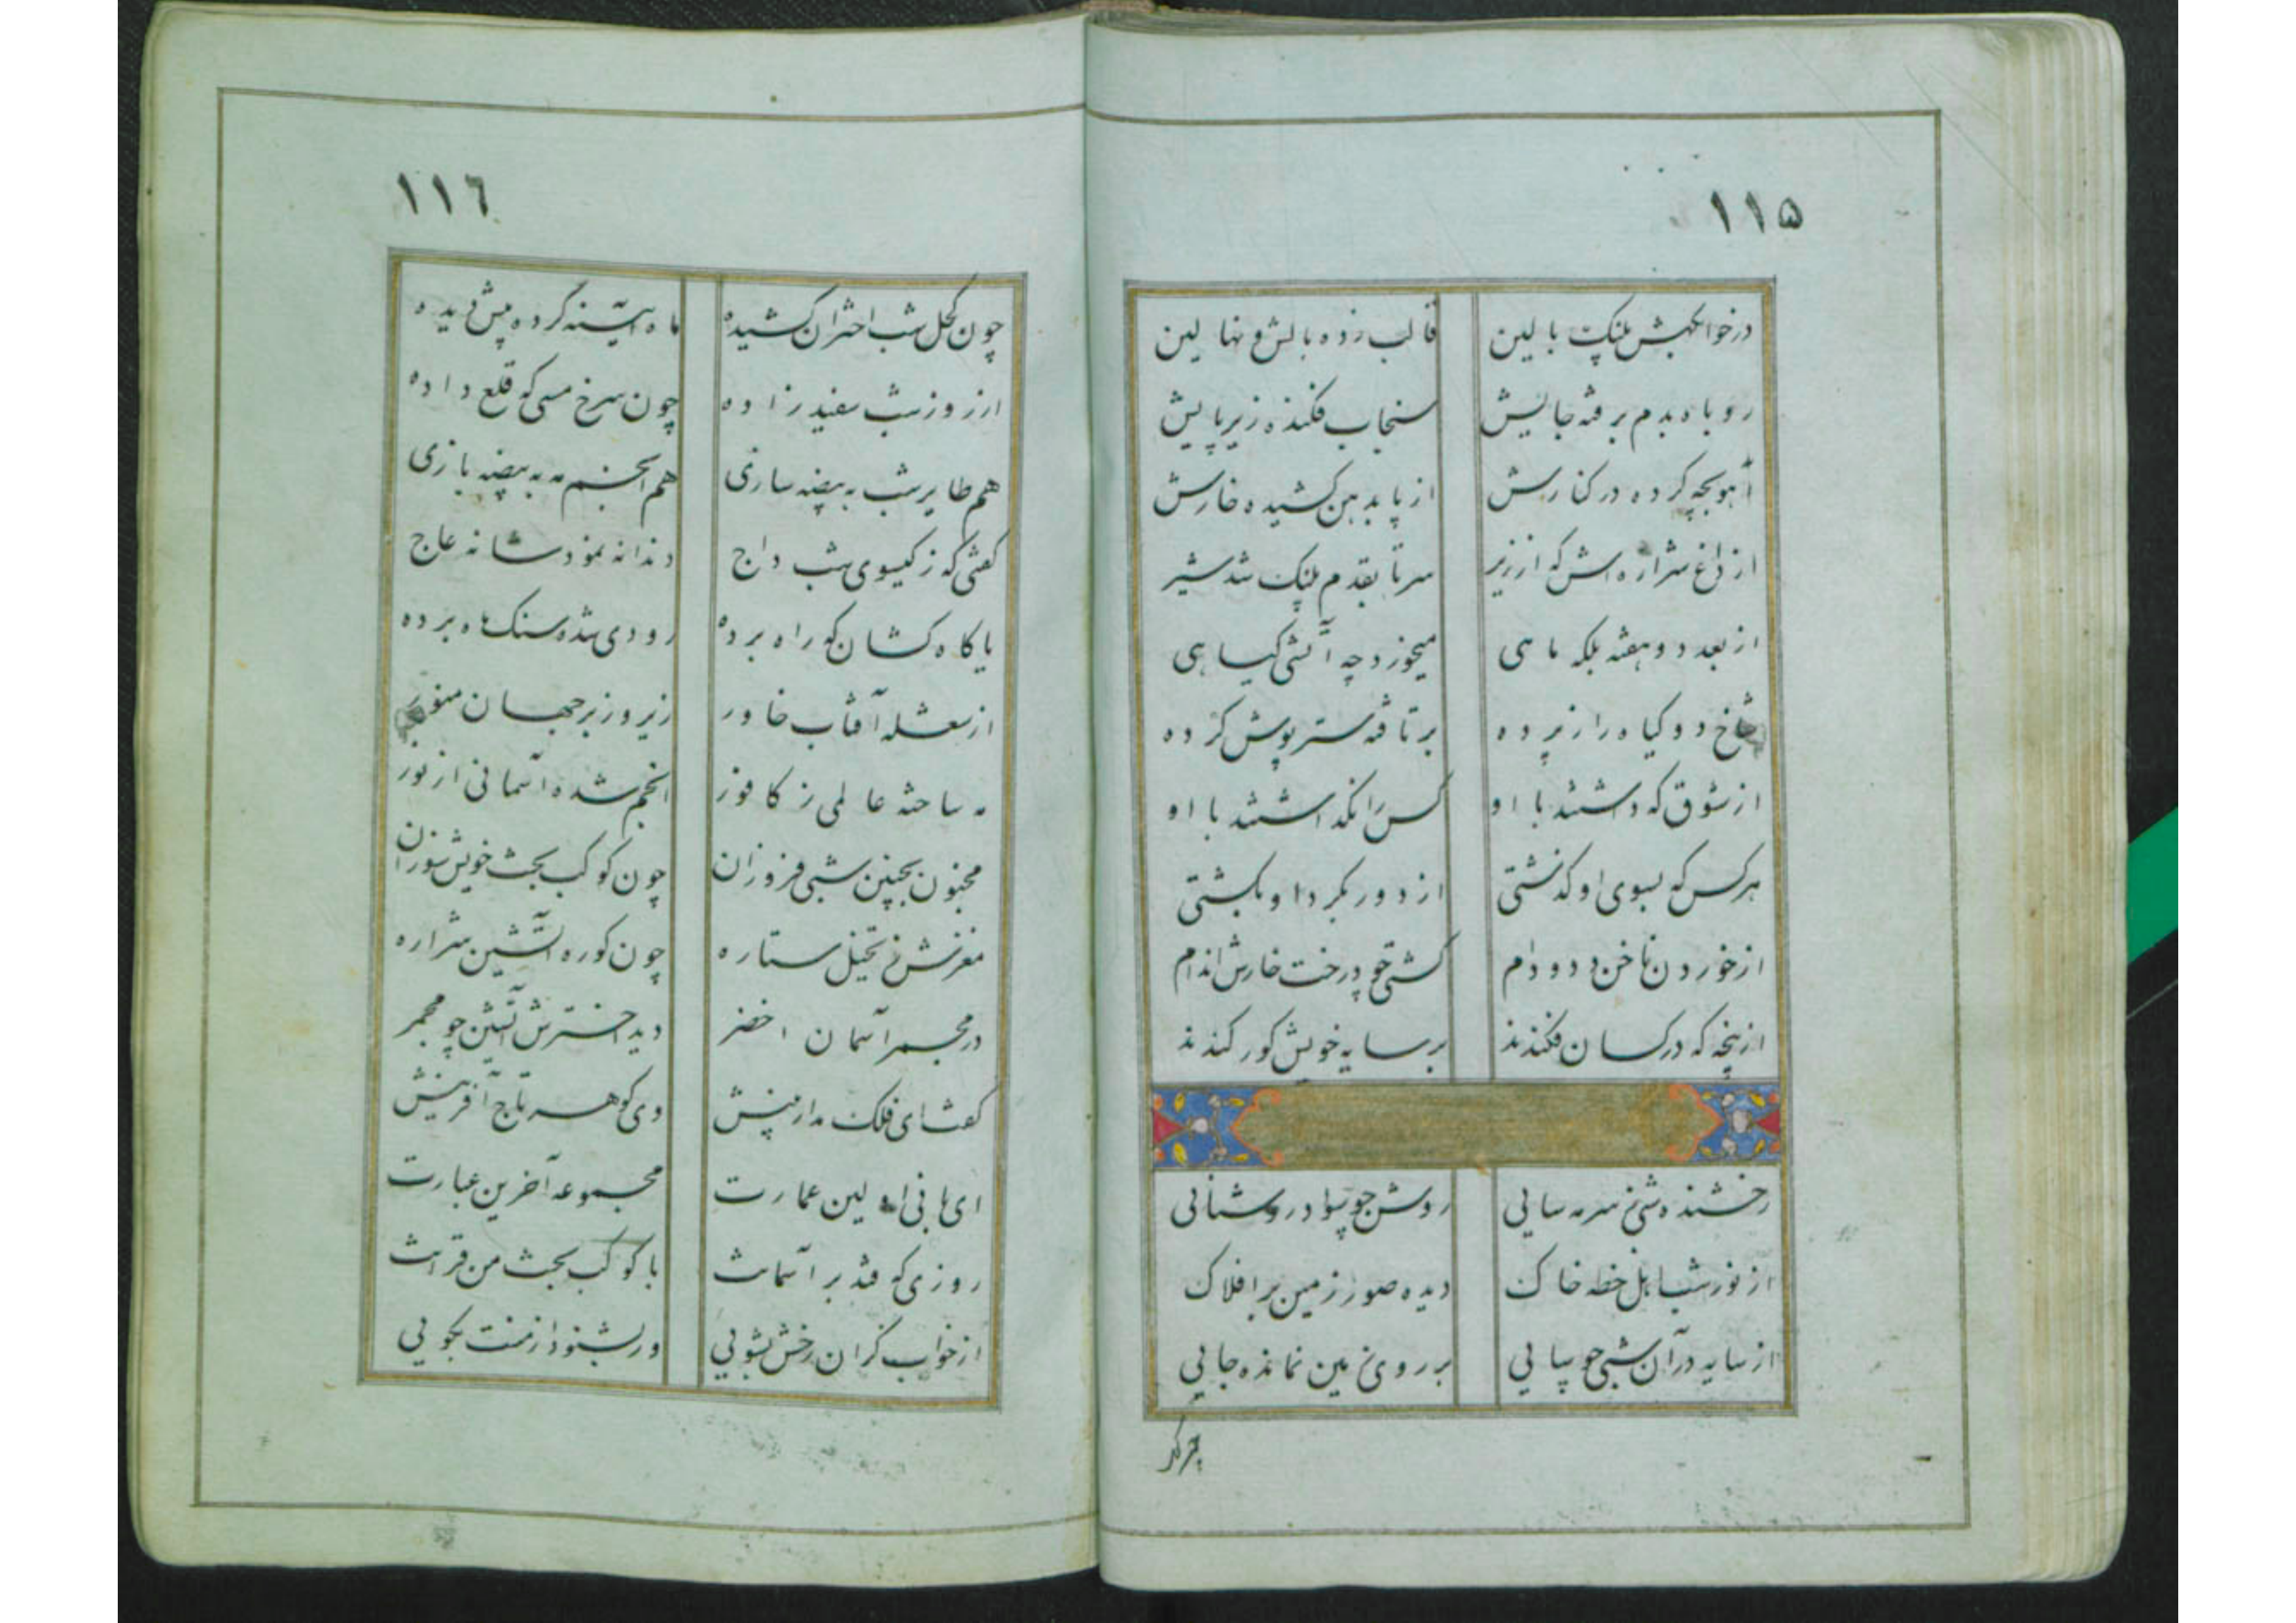 ۱۱۵
درخوابگهش پلنگ بالین قالب زده بالش و نهالین
روباه بدم برفته جایش سنجاب فکنده زیر پایش
آهو بچه کرده در کنارش از پا بدهن کشیده خارش
از داغ شراره اش که از زیر سر تا بقدم پلنک شد شیر
از بعد دو هفته بلکه ماهی میخورد چه آتشی کیاهی
شاخ دو کیاه را زبرده برتافته ستر پوش کرده
از شوق که داشتند با او کس را نگذاشتند با او
هر کس که بسوی او کذشتی از دور بکرد او بکشتی
از خوردن ناخن دد و دام کشتی چو درخت خارش اندام
از پنجه که در کسان فکندند بر سایه خویش کور کندند
رخشنده شبی ز سرمه سایی روشن چو سواد روشنائی
از نور شبا بل خطه خاک دیده صور زمین بر افلاک
از سایه در آن شبی چو سایی بر روی زمین نمانده جایی
۱۱٦
چون کحل شب اختران کشیده ماه آیینه کرده پیش دیده
از روز شب سفید زاده چون سرخ مسی که قلع داده
هم طایر شب به بیضه سازی هم انجم مه به بیضه بازی
کفتی که ز کیسوی شب داج دندانه نمود شانه عاج
یا کاه کشان که راه برده رودی شده سنک ماه برده
از مشعله آفتاب خاور زیر و زبر جهان منور
مه ساخته عالمی ز کافور انجم شده آسمانی از نور
مجنون بچنین شبی فروزان چون کوکب بخت خویش سوزان
مغزش ز تخیل ستاره چون کوره آتشین شراره
در مجمر آسمان اخضر دید اخترش آتشین چو مجمر
کفت ای فلک مدار بینش وی کوهر تاج آفرینش
ای بانی اولین عمارت مجموعه آخرین عبارت
روزی که فتد بر آسمانت با کوکب بخت من قرانت
از خواب کران رخش بشویی ور بشنود از منت بکویی